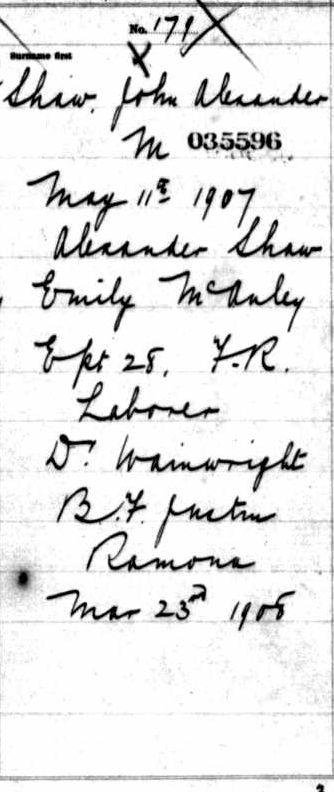 No. 179
Surname first
Shaw, John Alexander
M 035596
May 11th 1907
Alexander Shaw
Emily McAuley
Lot 28, F.R.
Laborer
Dr. Wainwright
B.F. Justin
Ramona
Mar 23rd 1908